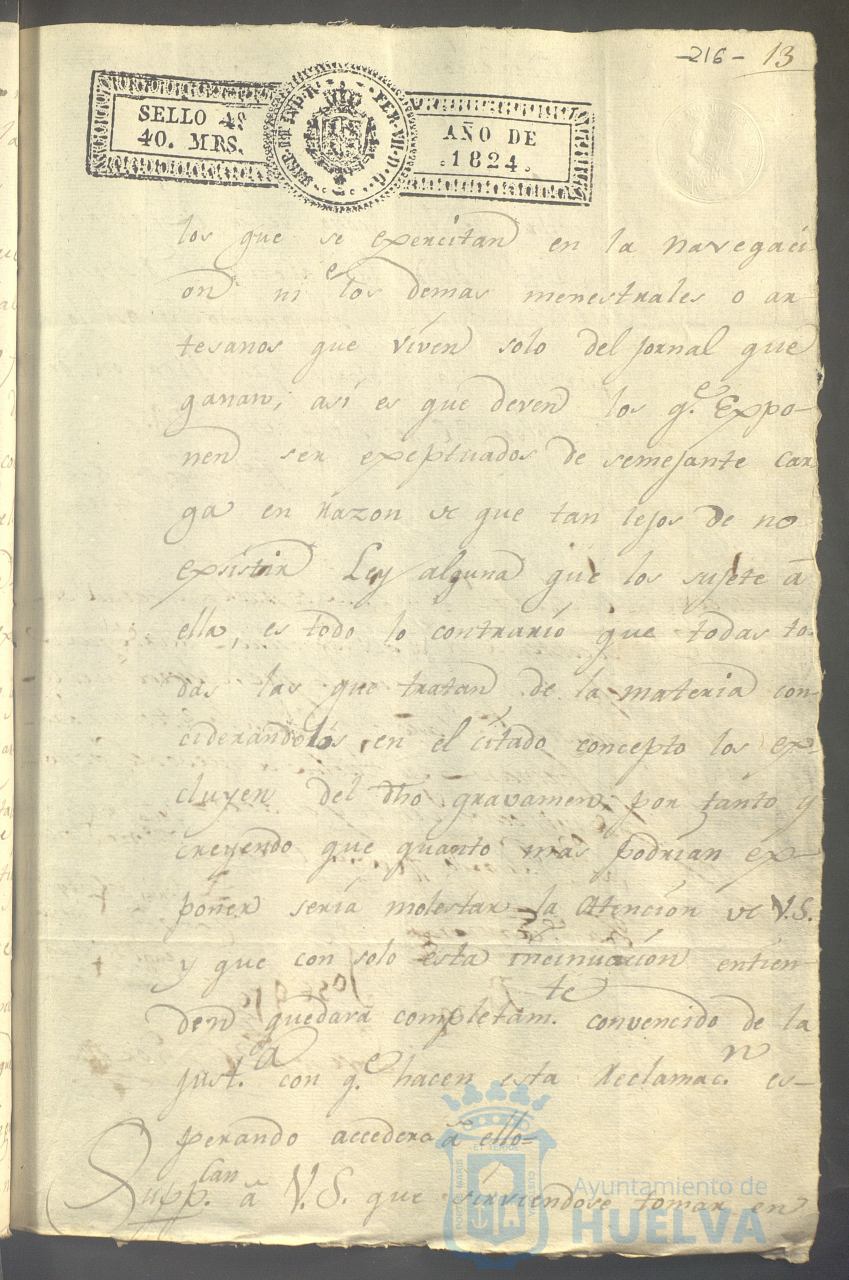 -216- 13
SELLO 4º
40. MRS.
HISP. ET IND. R. FER. VII. D. G.
AÑO DE
1824.
los que se exercitan en la navegaci-
on ni los demas menestrales o ar-
tesanos que viven solo del jornal que
ganan, asi es que deven los q.e Expo-
nen ser exeptuados de semejante car
ga en razon de que tan lejos de no
existir Ley alguna que los sujete â
ella, es todo lo contrario que todas to-
das las que tratan de la materia con-
ciderandolos en el citado concepto los ex-
cluyen del dho gravamen, por tanto y
creyendo que quanto mas podrian ex-
poner seria molestar la atención de V.S.
y que con solo esta incinuación entien-
den quedará completam.te convencido de la
just.ca con q.e hacen esta reclamac.n es-
perando accedera â ello=
Supp.lan â V.S. que sirviendose tomar en
Ayuntamiento de
HUELVA